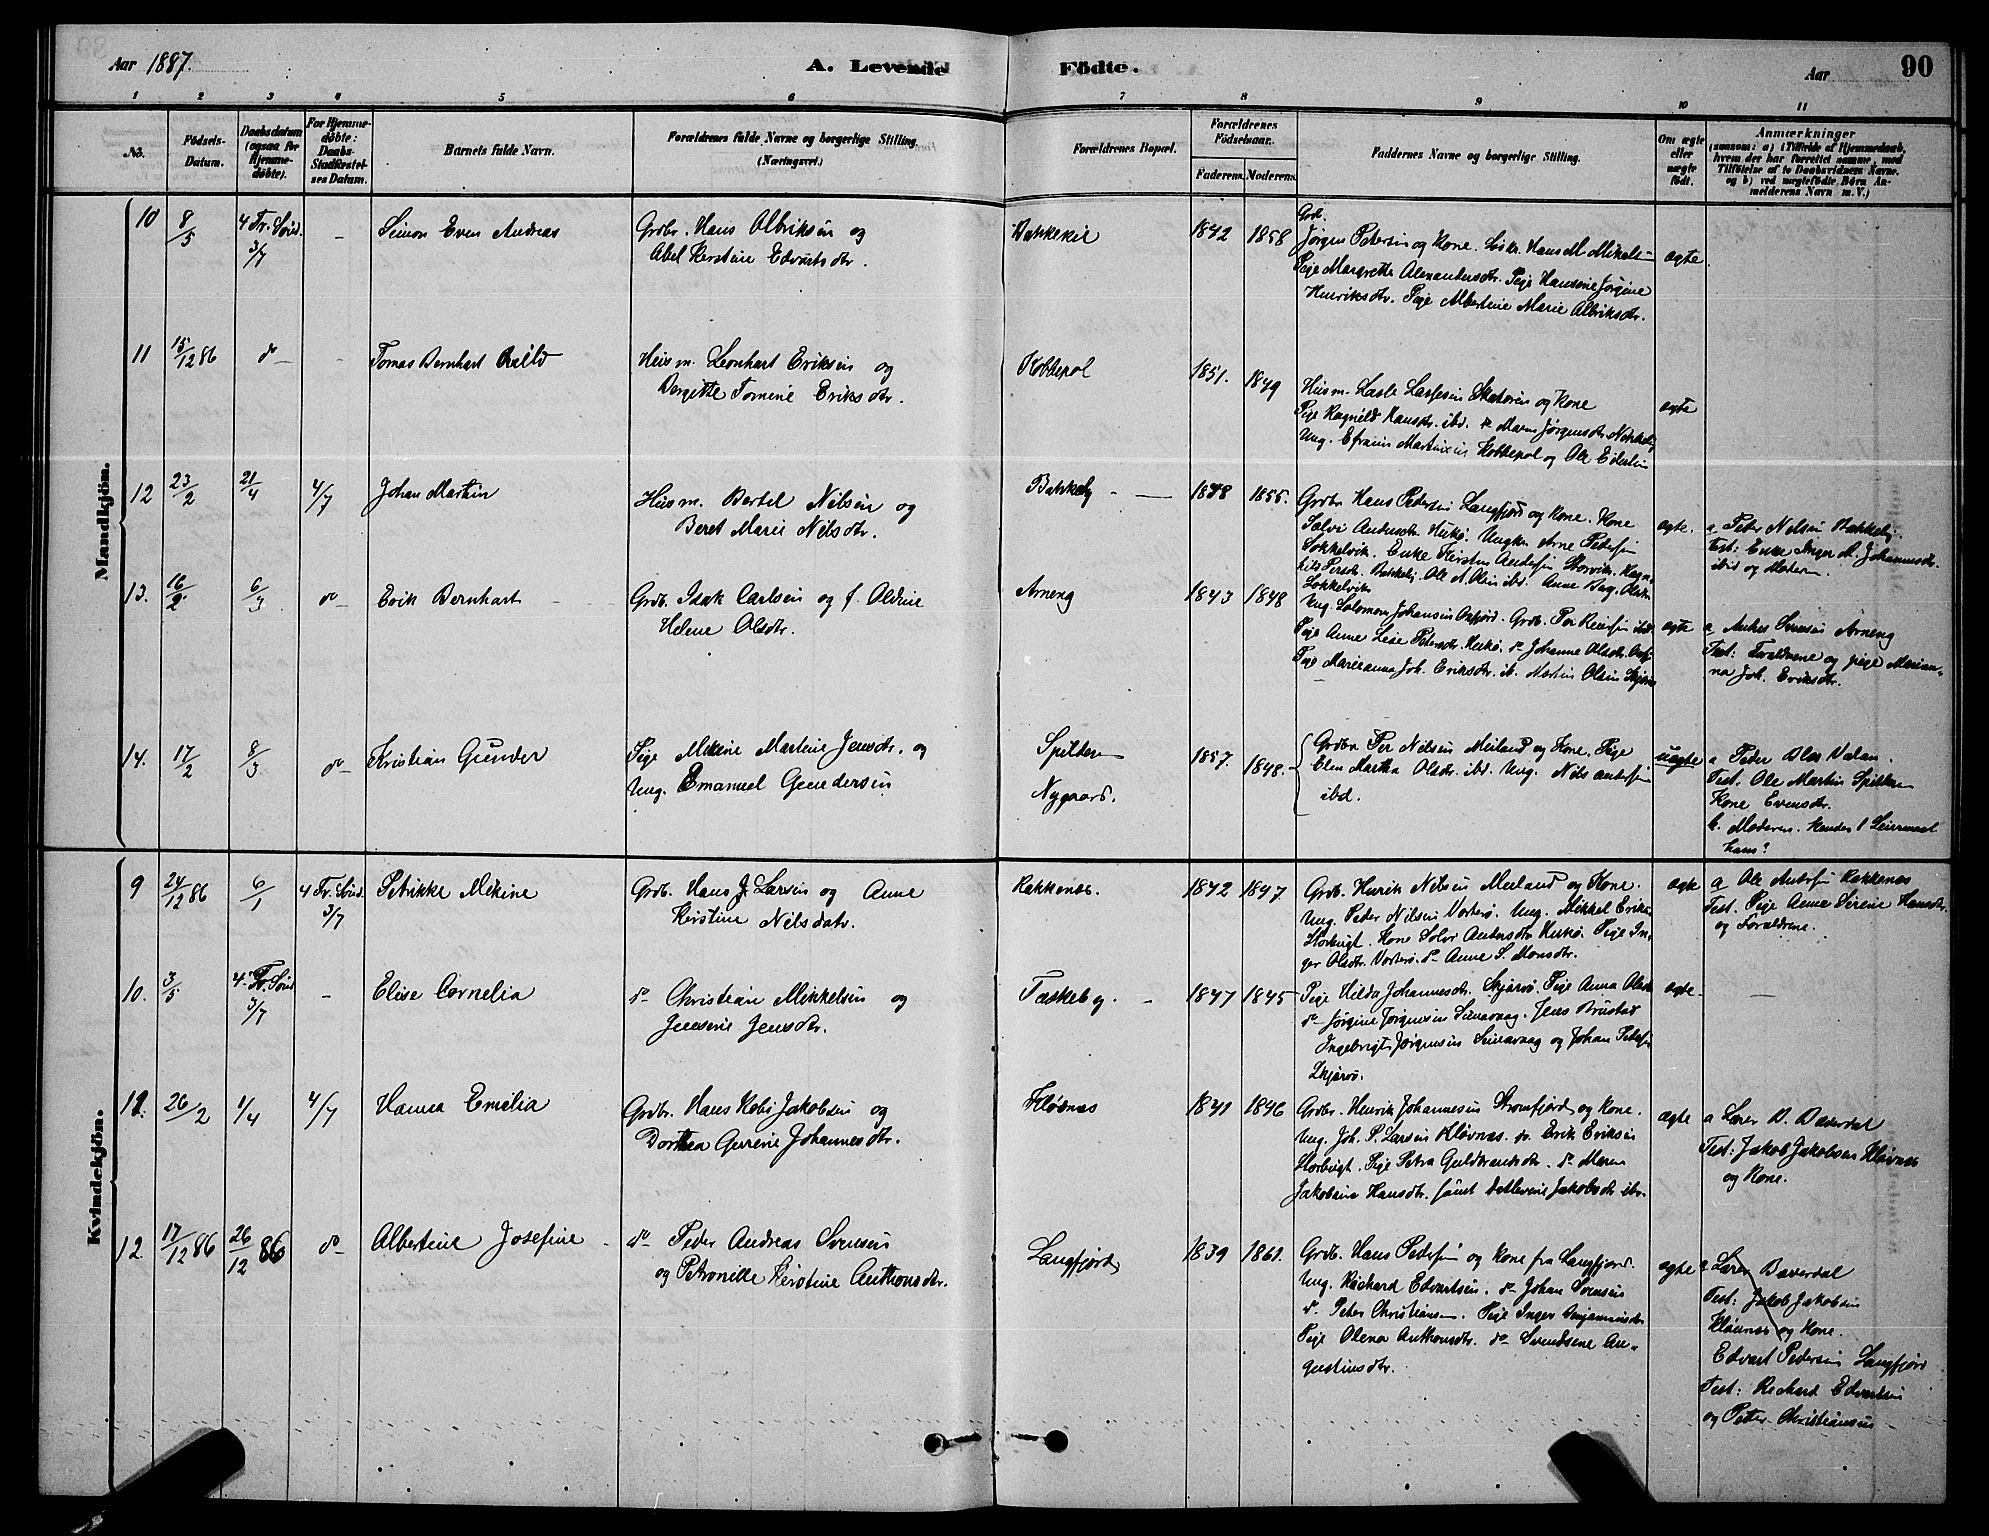 Aar 1887.
A. Levende Födte.
Aar
90
1 2 3 4 5 6 7 8 9 10 11
No.
Födsels-
Datum.
Daabsdatum
(ogsaa for
Hjemme-
döbte).
For Hjemme-
döbte:
Daabs-
Stadfæstel-
ses Datum.
Barnets fulde Navn.
Forældrenes fulde Navne og borgerlige Stilling.
(Næringsvei.)
Forældrenes Bopæl.
Forældrenes
Födselsaar.
Faderens. Moderens.
Faddernes Navne og borgerlige Stilling.
Om ægte
eller
uægte
födt.
Anmærkninger
(saasom: a) i Tilfælde af Hjemmedaab,
hvem der har forrettet samme, med
Tilföielse af to Daabsvidners Navne.
og b) ved uægtefödte Börn An-
melderens Navn m. V.)
Mandkjön.
10 8/5 4 Tr. Sönd. 3/7 – Simon Even Andreas
Grdbr. Hans Albriksen og
Abel Kerstine Edvartsdtr.
1842 1858
Grdb.
Jørgen Petersen og Kone. Hans M Mikels-
Pige Margrethe Alexandersdtr. Pige Hansine Jørgine
Henriksdtr. Pige Albertine Marie Albriksdtr.
ægte
11 15/12 86 do – – Tomas Bernhart
Husm. Leonhart Eriksen og
Bergitte Tomine Eriksdtr.
Kobbepol
1851. 1849
Husm. Lasse Lassesen og Kone
Pige Ragnild Hansdtr. ibd. Maren Jørgensdtr
Ung. Efraim Martinsen Kobbepol og Ole
ægte
12 23/2 21/4 4/7 Johan Martin
Husm. Bertel Nilsen og
Beret Marie Nilsdtr.
Bakkeby –
1848 1855.
Grdbr. Hans Pedersen Langfjord og Kone. Kone
Solvi Andersdtr. Hukø. Ungk. Arne Petersen
Sokkelvik. Enke Kirsten Andersen Storvik.
Persdtr. Bakkeby. Ole N. Olsen ibd. Anne
Sokkelvik
ægte.
a Peder Nilsen Bakkeby.
Test: Enke Inger M. Johannesdtr.
ibid og Moderen.
13. 16/2 6/3 do – Erik Bernhart
Grdb. Isak Carlsen og f. Oldine
Helene Olsdtr.
Arneng
1843 1848
Ung. Solomon Johansen Oxfjord. Grdb. Per
Pige Anne Lise Petersdtr. Hukø. do Johanne Olsdtr.
Pige Marieanna Joh. Eriksdtr. ib. Martin Olsen
ægte
a Anders Svensen Arneng
Test: Forældrene og pige Marian-
na Joh. Eriksdtr.
14. 17/2 8/3 do – Kristian Gunder
Pige Mekine Martine Jensdtr. og
Ung. Emanuel Gundersen
Spilderen
Nygaard.
1857. 1848.
Grdbr Per Nilsen Meiland og Kone. Pige
Elen Martha Olsdtr. ibd. Ung. Nils Andersen
ibd.
uægte
a Peder Valan.
Test. Ole Martin Spilderen
Kone Evensdtr.
b. Moderen. Hendes 1 Leiermaal
hans?
Kvindekjön.
9 24/12 86 6/1 4 Tr. Sönd. 3/7 Petrikke Mekine
Grdb. Hans J. Larsen og Anne
Kerstine Nilsdatr.
Kakkenæs.
1842 1847
Grdb. Henrik Nilsen Meiland og Kone.
Ung. Peder Nilsen Vorterø. Ung. Mikkel Eriks.
Storbugt. Kone Solvi Andersdtr Hukø. Pige In-
ger Olsdtr. Vorterø. do Anne S. Monsdtr.
ægte
a Ole Andersen Kakkenæs
Test. Pige Anne Serene Hansdtr.
og Forældrene.
10. 3/5 4 Tr. Sönd 3/7 – Elise Cornelia
do Christian Mikkelsen og
Jensine Jensdtr.
Taskeby. –
1847 1845
Pige Hilda Johannesdtr. Skjærvø. Pige Anna Olsdtr
do Jørgine Jørgensen Simavaag. Jens Brustad
Ingebrigt Jørgensen Simavaag og Johan Peters.
Skjærvø.
ægte
–
11. 26/2 1/4 4/7 Hanna Emelia
Grdbr. Hans Kobs Jakobsen og
Dorthea Gurine Johannesdtr.
Kløvnæs
1841 1846
Grdbr. Henrik Johannesen Strømfjord og Kone.
Ung. Joh. P. Larsen Kløvnæs. do. Erik Eriksen
Storbugt. Pige Petra Guldbrandsdtr. do Maren
Jakobine Hansdtr. samt Detlevine Jakobsdtr ibr.
ægte
a Lærer D. Baverdal
Test: Jakob Jakobsen Kløvnæs
og Kone.
12. 17/12 86 26/12 86 do – Albertine Josefine –
do Peder Andreas Svensen
og Petronille Kerstine Anthonsdtr.
Langfjord
1839 1861.
Grdb. Hans Pedersen og Kone fra Langfjord.
Ung. Richard Edvartsen. do Johan Svensen
do. Peter Christiansen. Pige Inger Benjaminsdtr
Pige Olena Anthonsdtr. do Svendsine Au-
gustinusdtr.
ægte
a Lærer Baverdal
Test: Jakob Jakobsen
Kløvnæs og Kone.
Edvart Pedersen Langfjord
Test: Richard Edvartsen
og Peter Christiansen